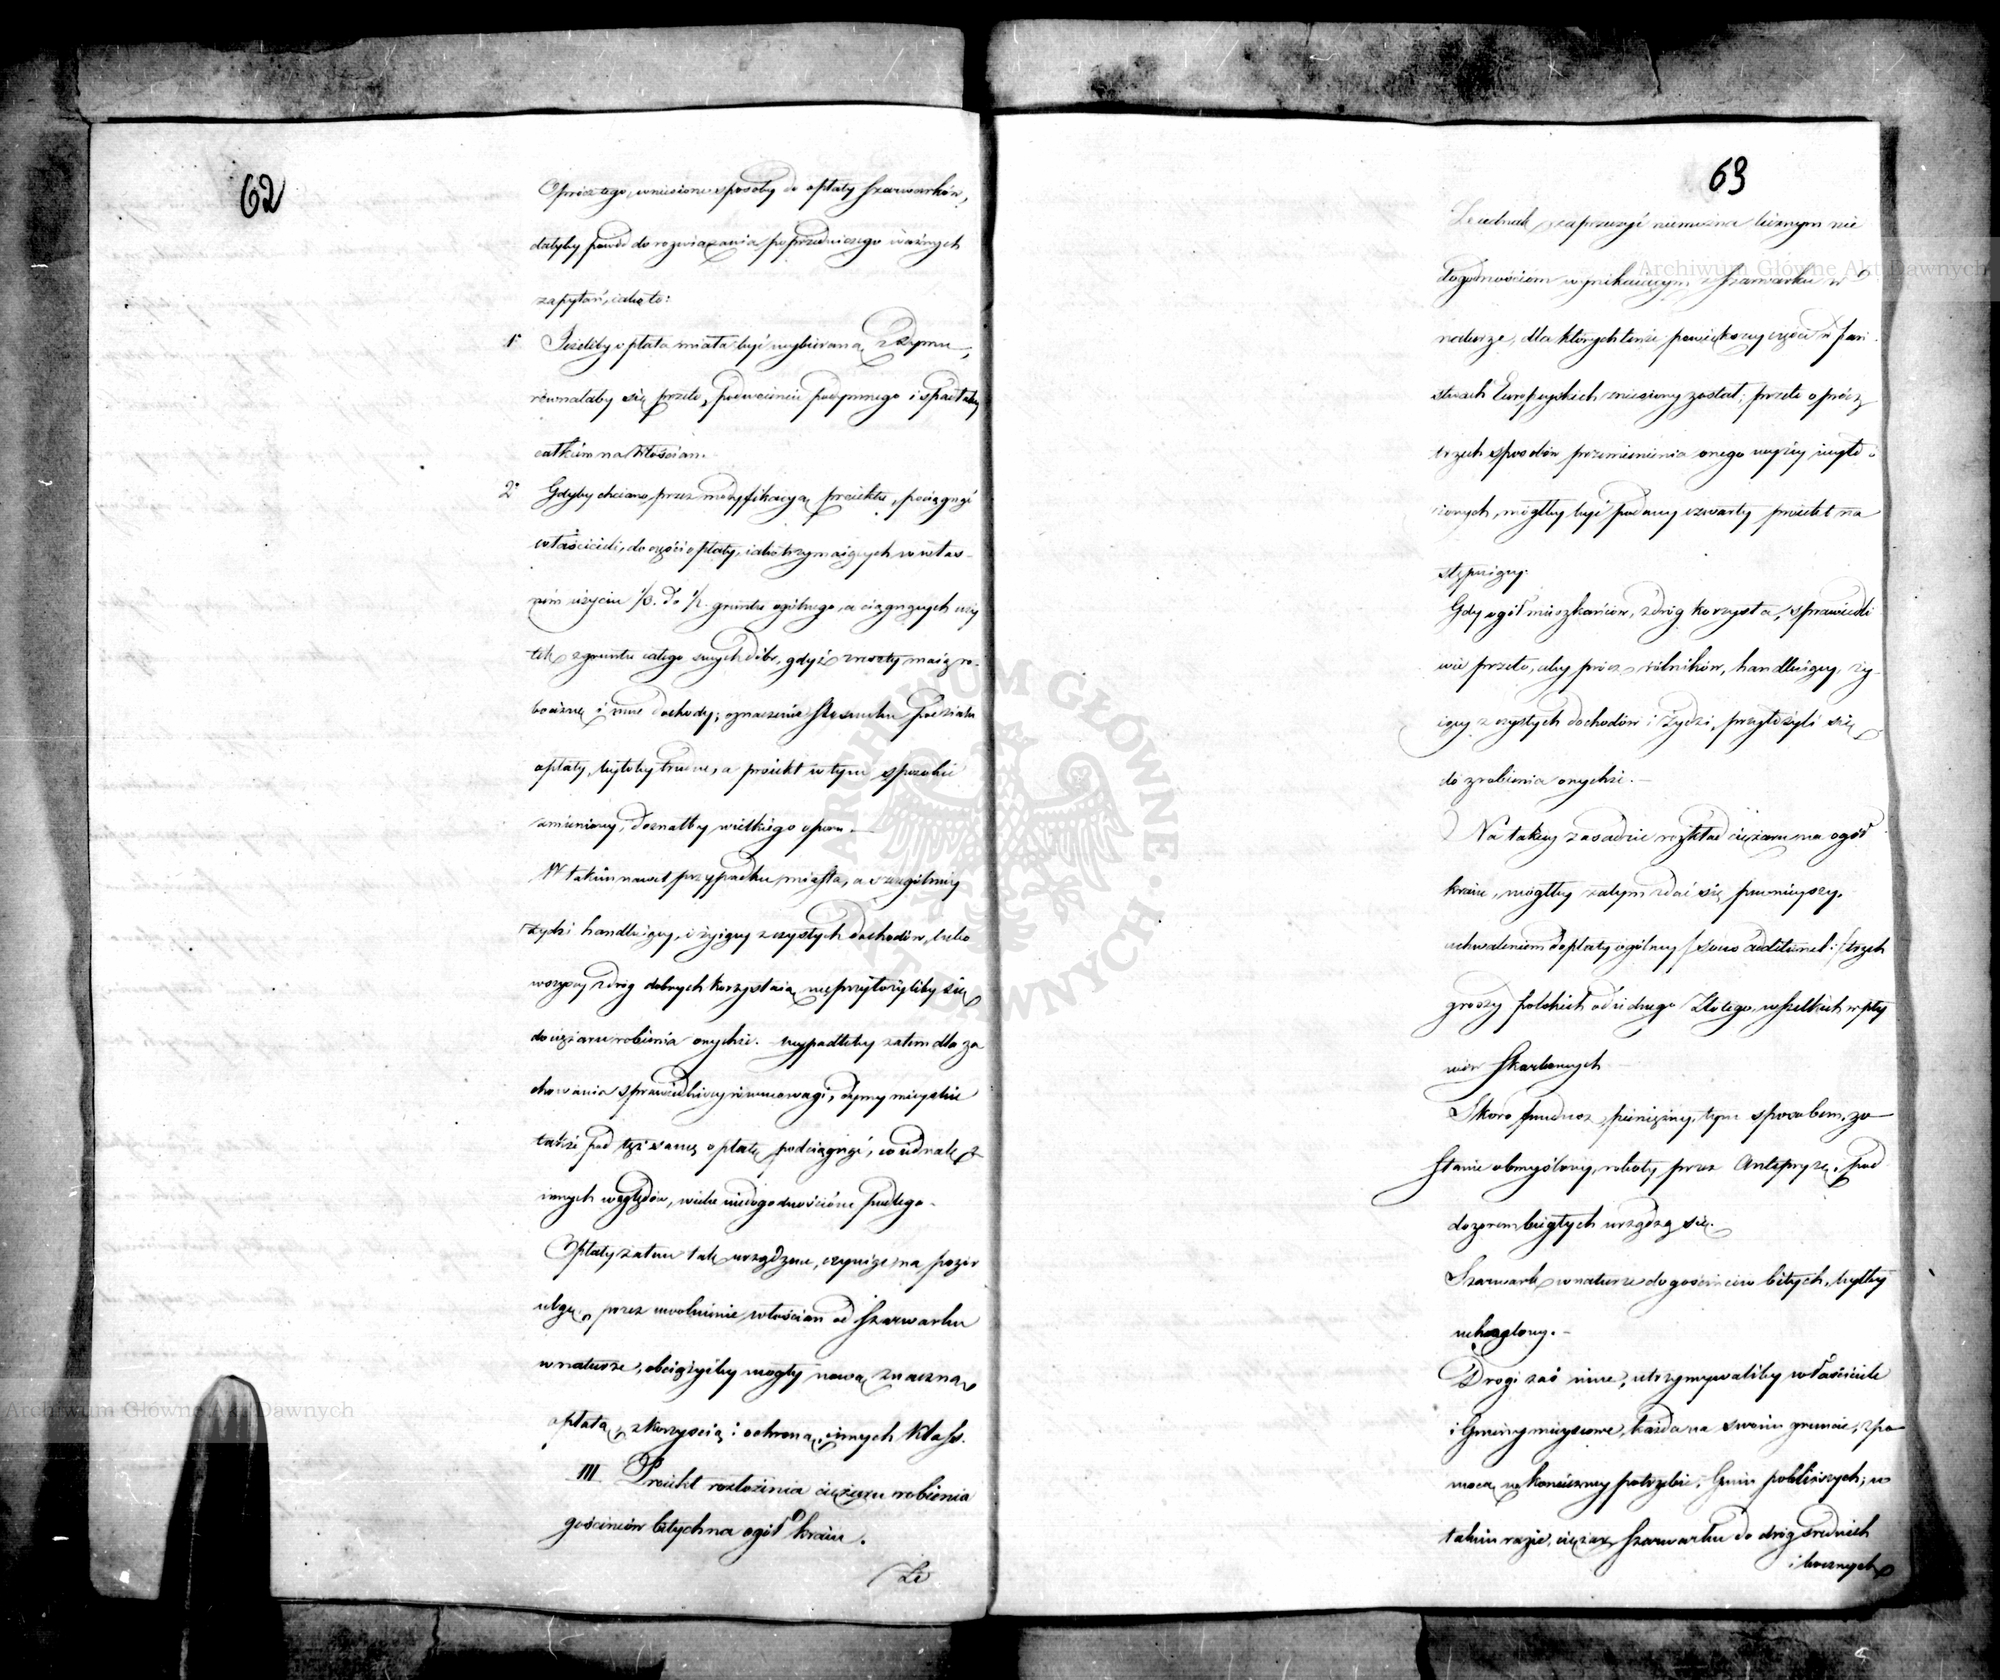 62
Oprócz tego, wniesione sposoby do opłaty szarwarków,
dałyby powód do rozwiązania poprzedniczego ważnych
zapytań, iako to:
1° Jeżeliby opłata miała być wybierana z dymu,
równałaby się przeto, podwoieniu podymnego i spadłaby
całkiem na Włościan.
2° Gdyby chciano, przez modyfikacyą proiektu, pociągnąć
właścicieli, do części opłaty, iako trzymaiących w włas-
nym użyciu 1/3. do 1/2. gruntu ogólnego, a ciągnących uży
tek z gruntu całego swych dóbr, gdyż z reszty maią ro-
bociznę i inne dochody; oznaczenie stosunku podziału
opłaty, byłoby trudne, a proiekt w tym sposobie
zmieniony, doznałby wielkiego oporu.—
W takim nawet przypadku, miasta, a szczególniey
żydzi handluiący, i żyiący z czystych dochodów, lubo
wszyscy z dróg dobrych korzystaią, nieprzyłożyliby się
do ciężaru robienia onychże. wypadłoby zatem dla za
chowania sprawiedliwey równowagi, dymy mieyskie
także pod tęż samę opłatę podciągnąć, co iednak z
innych względów, wielu niedogodnościom podlega.
Opłaty zatem tak urządzone, czyniąc na pozór
ulgę, przez uwolnienie włościan od szarwarku
w naturze, obciążyćby mogły nową znaczną
opłatą, z korzyścią i ochroną innych klass.
III Proiekt rozłożenia ciężaru robienia
gościńców bitych na ogół kraiu.
Że
63
Że iednak zaprzeczyć niemożna licznym nie
dogodnościom wynikaiącym z szarwarku w
naturze, dla których tenże powiększey części w pań
stwach Europeyskich zniesiony został; przeto oprócz
trzech sposobów przemienienia onego wyżey wyło
żonych, mógłby być podany czwarty proiekt na
stępuiący.
Gdy ogół mieszkańców, z dróg korzysta, sprawiedli
wie przeto, aby prócz rólników, handluiący, ży-
iący z czystych dochodów i Żydzi, przyłożyli się
do zrobienia onychże.—
Na takiey zasadzie rozkład ciężaru na ogół
kraiu, mógłby zatym zdać się pewnieyszy.
uchwaleniem dopłaty ogólney /: sous additionel :/ trzech
groszy polskich od iednego Złotego, wszelkich wpły
wów Skarbowych
Skoro fundusz pieniężny, tym sposobem, zo
stanie obmyślony, roboty przez Antreprizę, pod
dozorem biegłych urządzą się.
Szarwark w naturze do gościńców bitych, byłby
uchylony.—
Drogi zaś inne, utrzymywaliby właściciele
i Gminy mieyscowe, każda na swoim gruncie, z po
mocą w konieczney potrzebie, Gmin pobliższych; w
takim razie, ciężar szarwarku do dróg średnich
i bocznych
Archiwum Główne Akt Dawnych
Archiwum Główne Akt Dawnych
ARCHIWUM GŁÓWNE AKT DAWNYCH